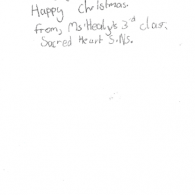 Happy Christmas.
from, Ms Healy's 3rd class.
Sacred Heart S.Ns.